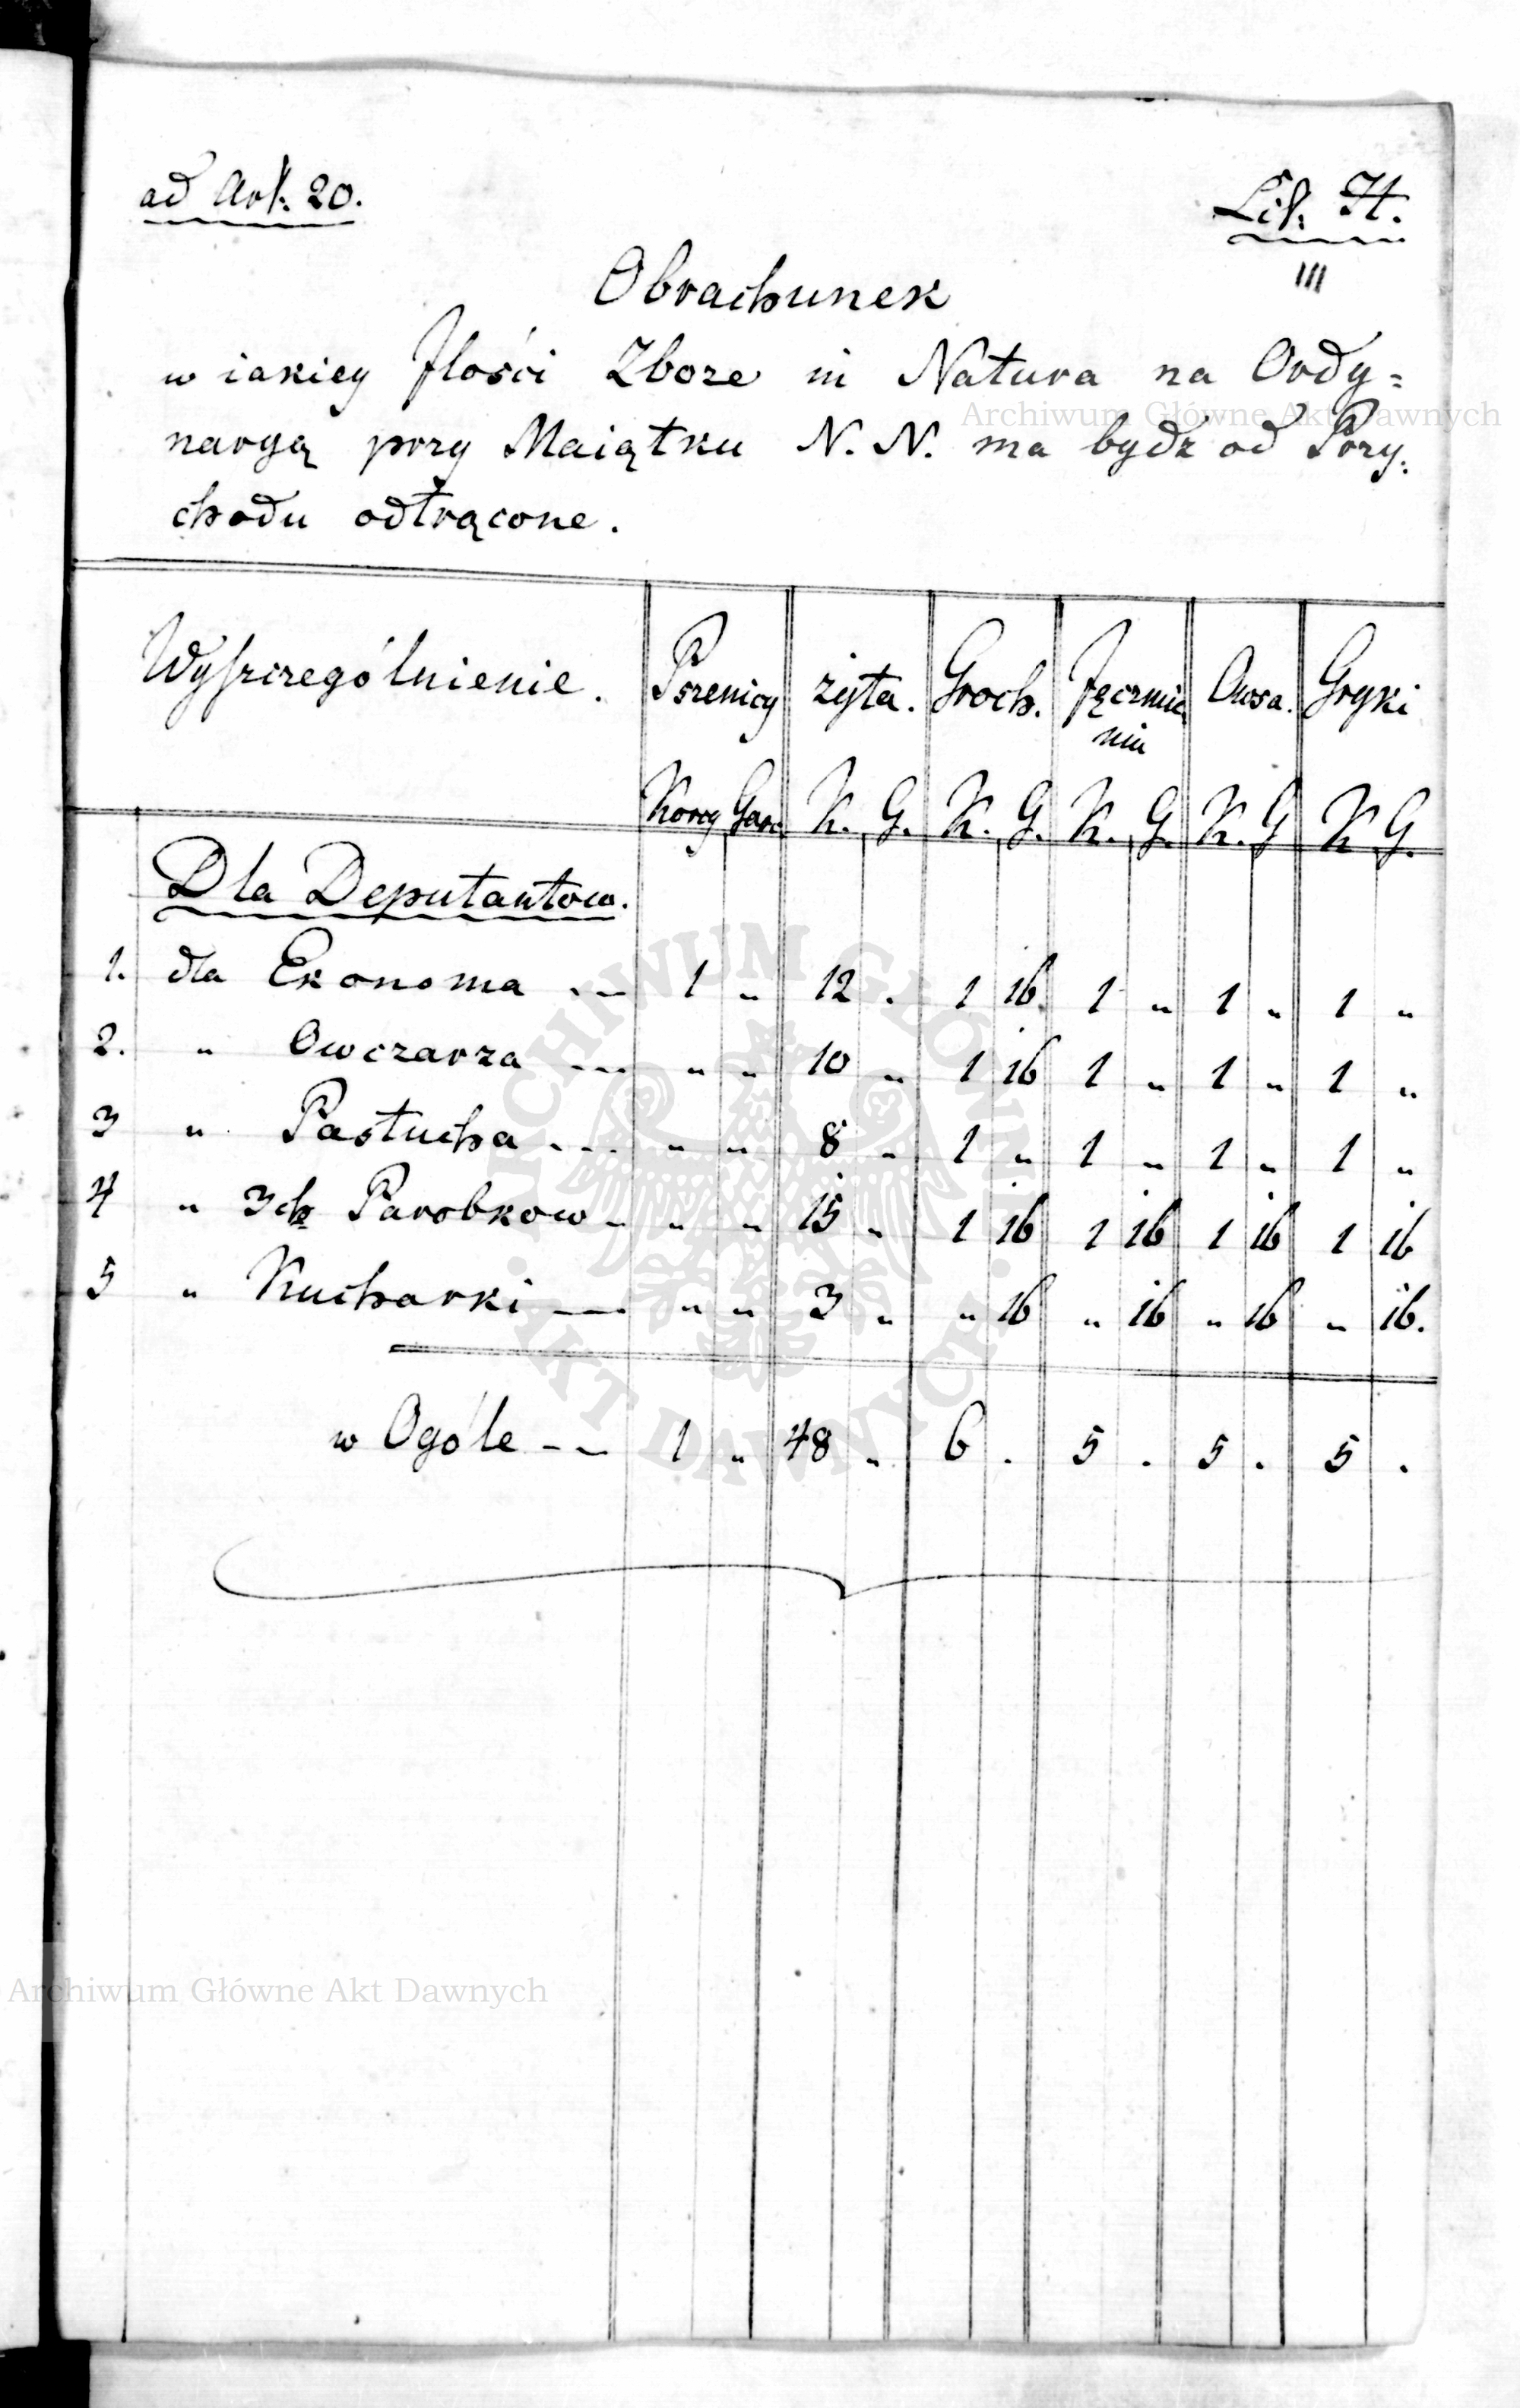 ad Art. 20.
Lit. H.
III
Obrachunek
w iakiey Jlości Zboze in Natura na Ordy=
naryą przy Maiątku N. N. ma bydz od Przy:
chodu odtrącone.
Wyszczególnienie. Pszenicy żyta. Groch. Jęczmie Owsa. Gryki
niu
Korcy Garc. K. G. K. G. K. G. K. G K G.
Dla Deputantow.
1. dla Ekonoma --- 1 " 12 . 1 16 1 " 1 " 1 "
2. " Owczarza --- " " 10 " 1 16 1 " 1 " 1 "
3 " Pastucha --- " " 8 " 1 " 1 " 1 " 1 "
4 " 3ch Parobkow - " " 15 " 1 16 1 16 1 16 1 16
5 " Kucharki -- " " 3 " " 16 " 16 " 16 " 16.
w Ogóle -- 1 " 48 " 6 . 5 . 5 . 5 .
Archiwum Główne Akt Dawnych
ARCHIWUM GŁÓWNE
AKT DAWNYCH
Archiwum Główne Akt Dawnych